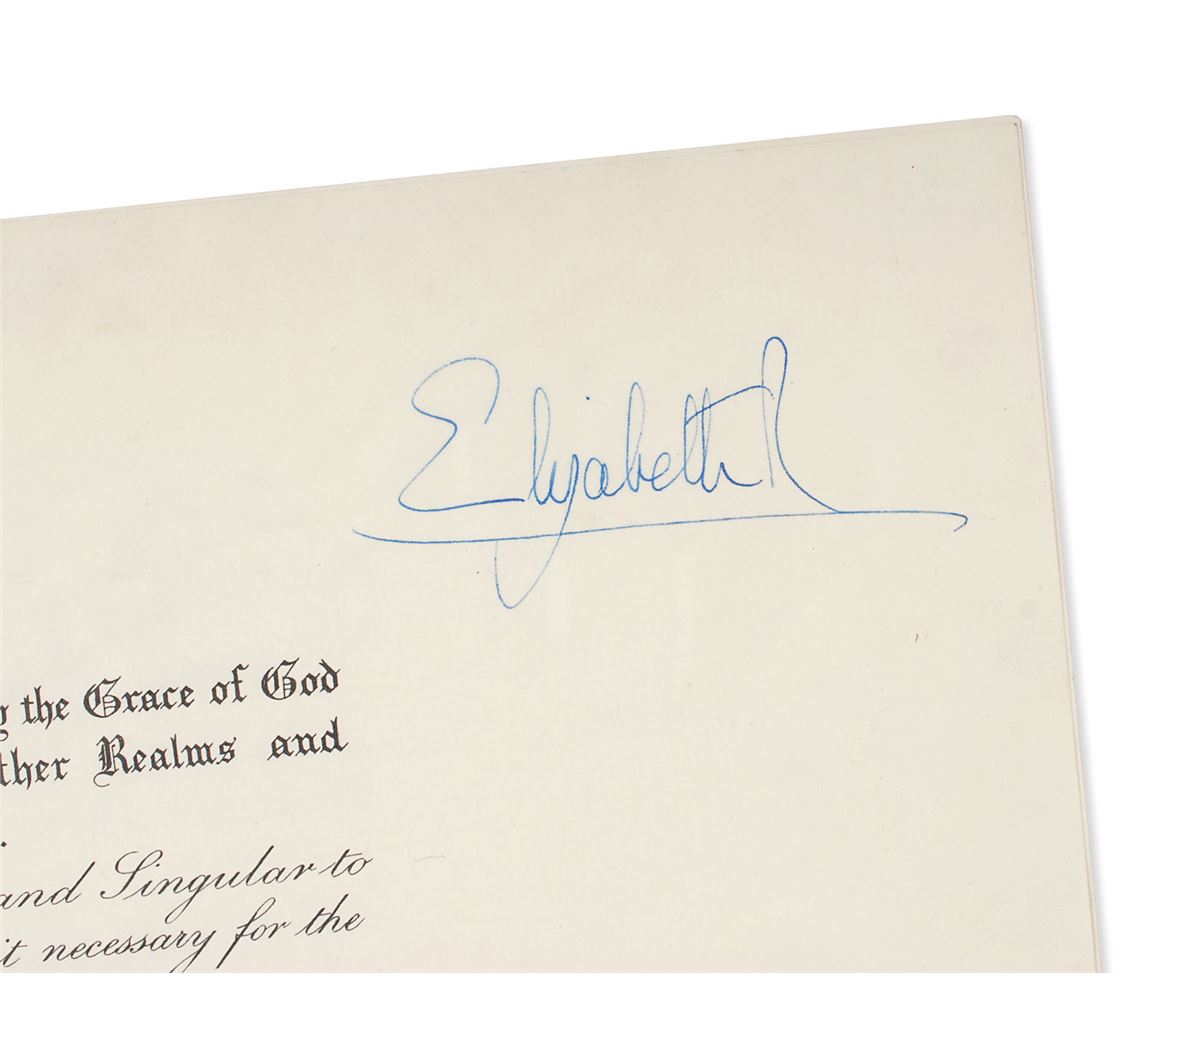 Elizabeth R
the Grace of God
ther Realms and
and Singular to
it necessary for the